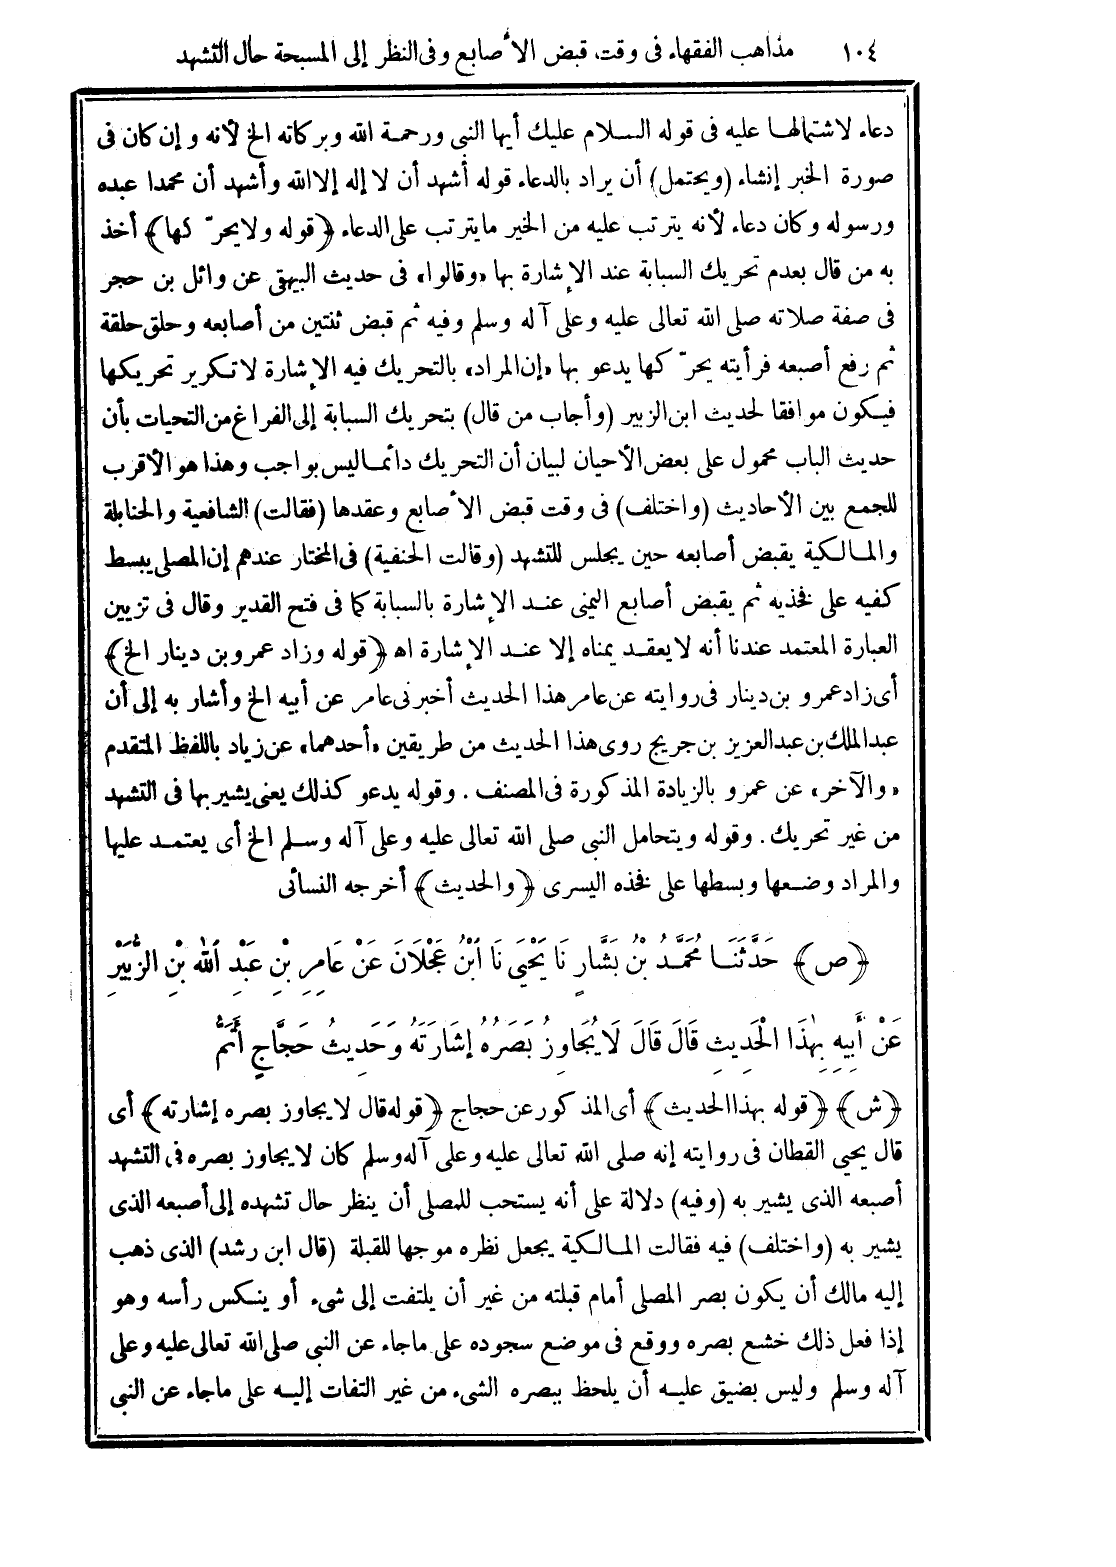 ١٠٤ مذاهب الفقهاء فى وقت قبض الأصابع وفى النظر إلى المسبحة حال التشهد
دعاء لاشتمالها عليه فى قوله السلام عليك أيها النبى ورحمة الله وبركاته الخ لأنه وإن كان فى
صورة الخبر إنشاء (ويحتمل) أن يراد بالدعاء قوله أشهد أن لا إله إلا الله وأشهد أن محمدا عبده
ورسوله وكان دعاء لأنه يترتب عليه من الخير مايترتب على الدعاء ﴿قوله ولايحرّكها﴾ أخذ
به من قال بعدم تحريك السبابة عند الإشارة بها «وقالوا» فى حديث البيهقى عن وائل بن حجر
فى صفة صلاته صلى الله تعالى عليه وعلى آله وسلم وفيه ثم قبض ثنتين من أصابعه وحلق حلقة
ثم رفع أصبعه فرأيته يحرّكها يدعو بها «إن المراد» بالتحريك فيه الإشارة لاتكرير تحريكها
فيكون موافقا لحديث ابن الزبير (وأجاب من قال) بتحريك السبابة إلى الفراغ من التحيات بأن
حديث الباب محمول على بعض الأحيان لبيان أن التحريك دائما ليس بواجب وهذا هو الأقرب
للجمع بين الأحاديث (واختلف) فى وقت قبض الأصابع وعقدها (فقالت) الشافعية والحنابلة
والمالكية يقبض أصابعه حين يجلس للتشهد (وقالت الحنفية) فى المختار عندهم إن المصلى يبسط
كفيه على فخذيه ثم يقبض أصابع اليمنى عند الإشارة بالسبابة كما فى فتح القدير وقال فى تزيين
العبارة المعتمد عندنا أنه لايعقد يمناه إلا عند الإشارة اه ﴿قوله وزاد عمرو بن دينار الخ﴾
أى زاد عمرو بن دينار فى روايته عن عامر هذا الحديث أخبرنى عامر عن أبيه الخ وأشار به إلى أن
عبد الملك بن عبد العزيز بن جريج روى هذا الحديث من طريقين «أحدهما» عن زياد باللفظ المتقدم
«والآخر» عن عمرو بالزيادة المذكورة فى المصنف . وقوله يدعو كذلك يعنى يشير بها فى التشهد
من غير تحريك . وقوله ويتحامل النبى صلى الله تعالى عليه وعلى آله وسلم الخ أى يعتمد عليها
والمراد وضعها وبسطها على فخذه اليسرى ﴿والحديث﴾ أخرجه النسائى
﴿ص﴾ حَدَّثَنَا مُحَمَّدُ بْنُ بَشَّارٍ نَا يَحْيَى نَا ابْنُ عَجْلَانَ عَنْ عَامِرِ بْنِ عَبْدِ اللهِ بْنِ الزُّبَيْرِ
عَنْ أَبِيهِ بِهٰذَا الْحَدِيثِ قَالَ قَالَ لَا يُجَاوِزُ بَصَرُهُ إِشَارَتَهُ وَحَدِيثُ حَجَّاجٍ أَتَمُّ
﴿ش﴾ ﴿قوله بهذا الحديث﴾ أى المذكور عن حجاج ﴿قوله قال لايجاوز بصره إشارته﴾ أى
قال يحيى القطان فى روايته إنه صلى الله تعالى عليه وعلى آله وسلم كان لايجاوز بصره فى التشهد
أصبعه الذى يشير به (وفيه) دلالة على أنه يستحب للمصلى أن ينظر حال تشهده إلى أصبعه الذى
يشير به (واختلف) فيه فقالت المالكية يجعل نظره موجها للقبلة (قال ابن رشد) الذى ذهب
إليه مالك أن يكون بصر المصلى أمام قبلته من غير أن يلتفت إلى شىء أو ينكس رأسه وهو
إذا فعل ذلك خشع بصره ووقع فى موضع سجوده على ماجاء عن النبى صلى الله تعالى عليه وعلى
آله وسلم وليس بضيق عليه أن يلحظ ببصره الشىء من غير التفات إليه على ماجاء عن النبى